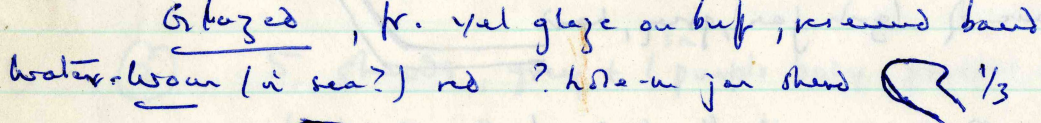 Glazed, fr. yel glaze on buff, reserved band
Water-worn (in sea?) red ? hole-in jar sherd 1/3